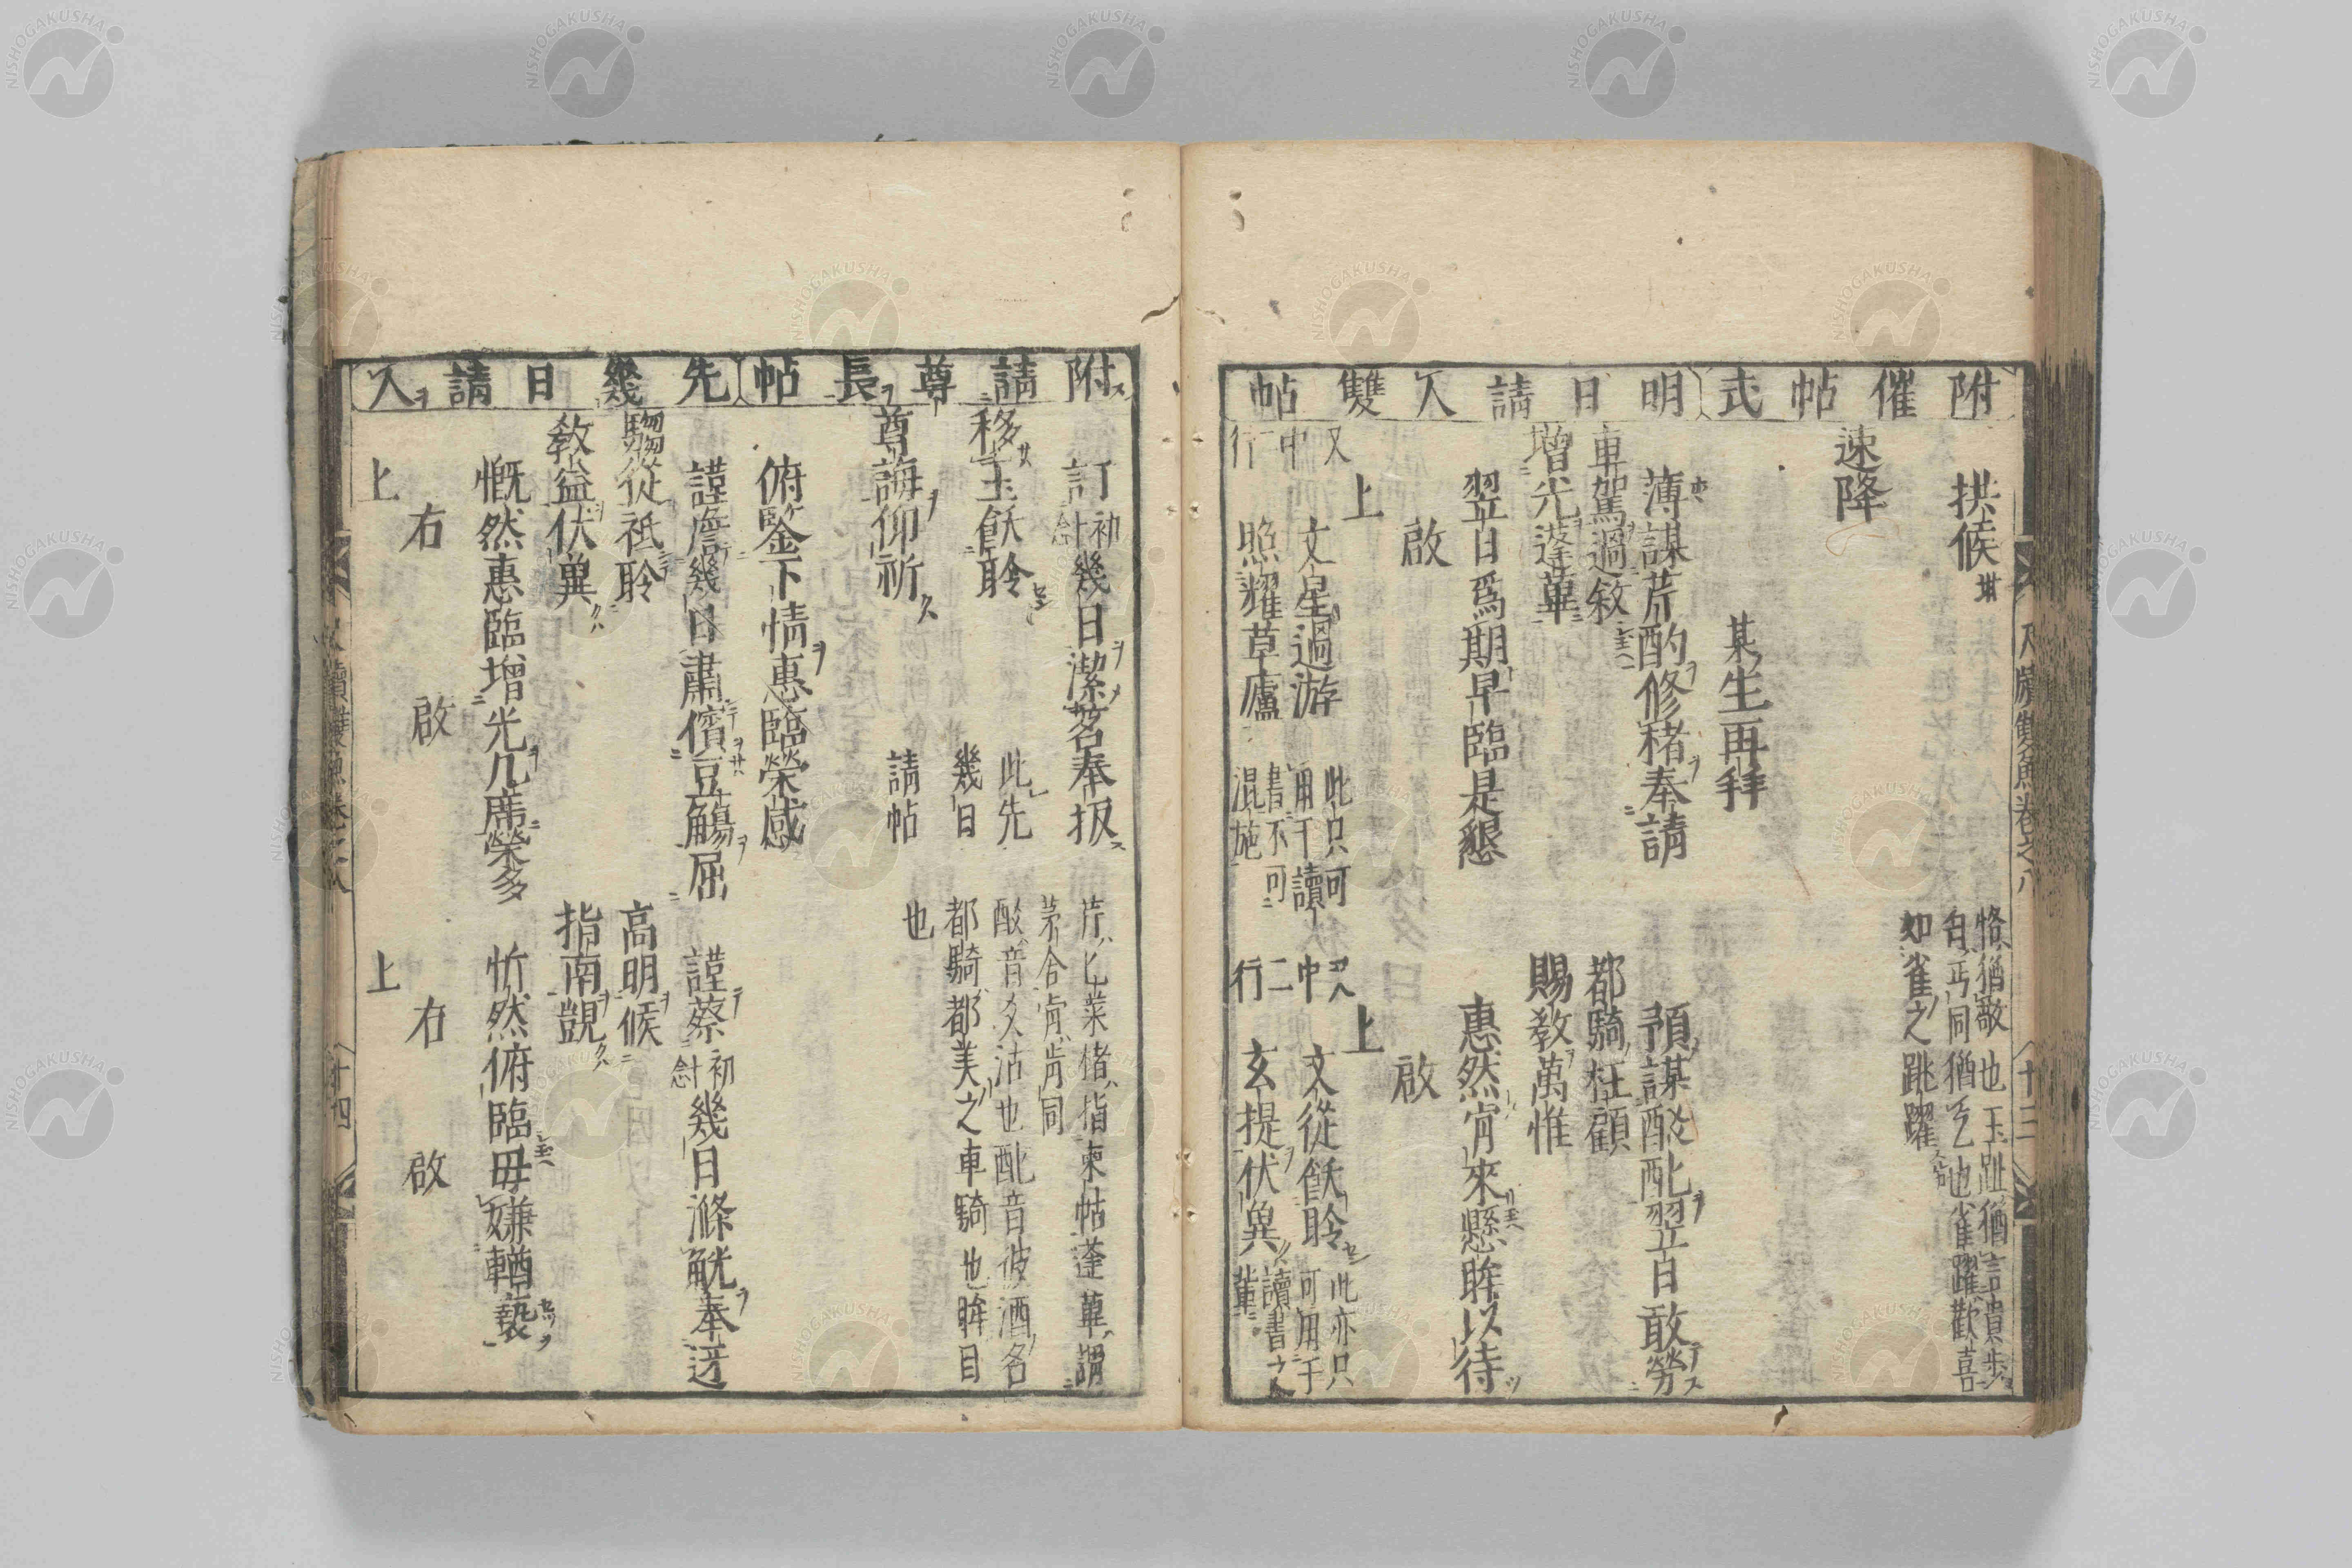 附催帖式
明日請人雙帖
拱候
恪猶敬也玉趾猶言貴步
匄丐同猶乞也雀躍歡喜
如雀之跳躍
速降
某生再拜
薄謀芹酌修楮奉請
車駕過敘
增光蓬蓽
翌日爲期早臨是懇
啟
上
預謀酘酏翌日敢勞
都騎枉顧
賜教萬惟
惠然肯來懸眸以待
啟
上
又中行
文星過游
照耀草廬
此只可用于讀
書不可混施
又中二行
文從飫聆
玄提伏冀
此亦只可用于
讀書之輩
附請尊長帖
先幾日請人
訂初計念幾日潔茗奉扳
移玉飫聆
尊誨仰祈
俯鑒下情惠臨榮感
此先
幾日
請帖
芹乜菜楮指柬帖蓬蓽謂
茅舍肻肯同
酘音又沽也酏音彼酒名
都騎都美之車騎也眸目
也
謹詹幾日肅儐豆觴屈
騶從祗聆
教益伏冀
慨然惠臨增光几席榮多
右
啟
上
謹蔡初計念幾日滌觥奉迓
高明候
指南覬
忻然俯臨毋嫌輶褻
右
啟
上
尺牘雙魚卷之八
十三
尺牘雙魚卷之八
十四
NISHOGAKUSHA